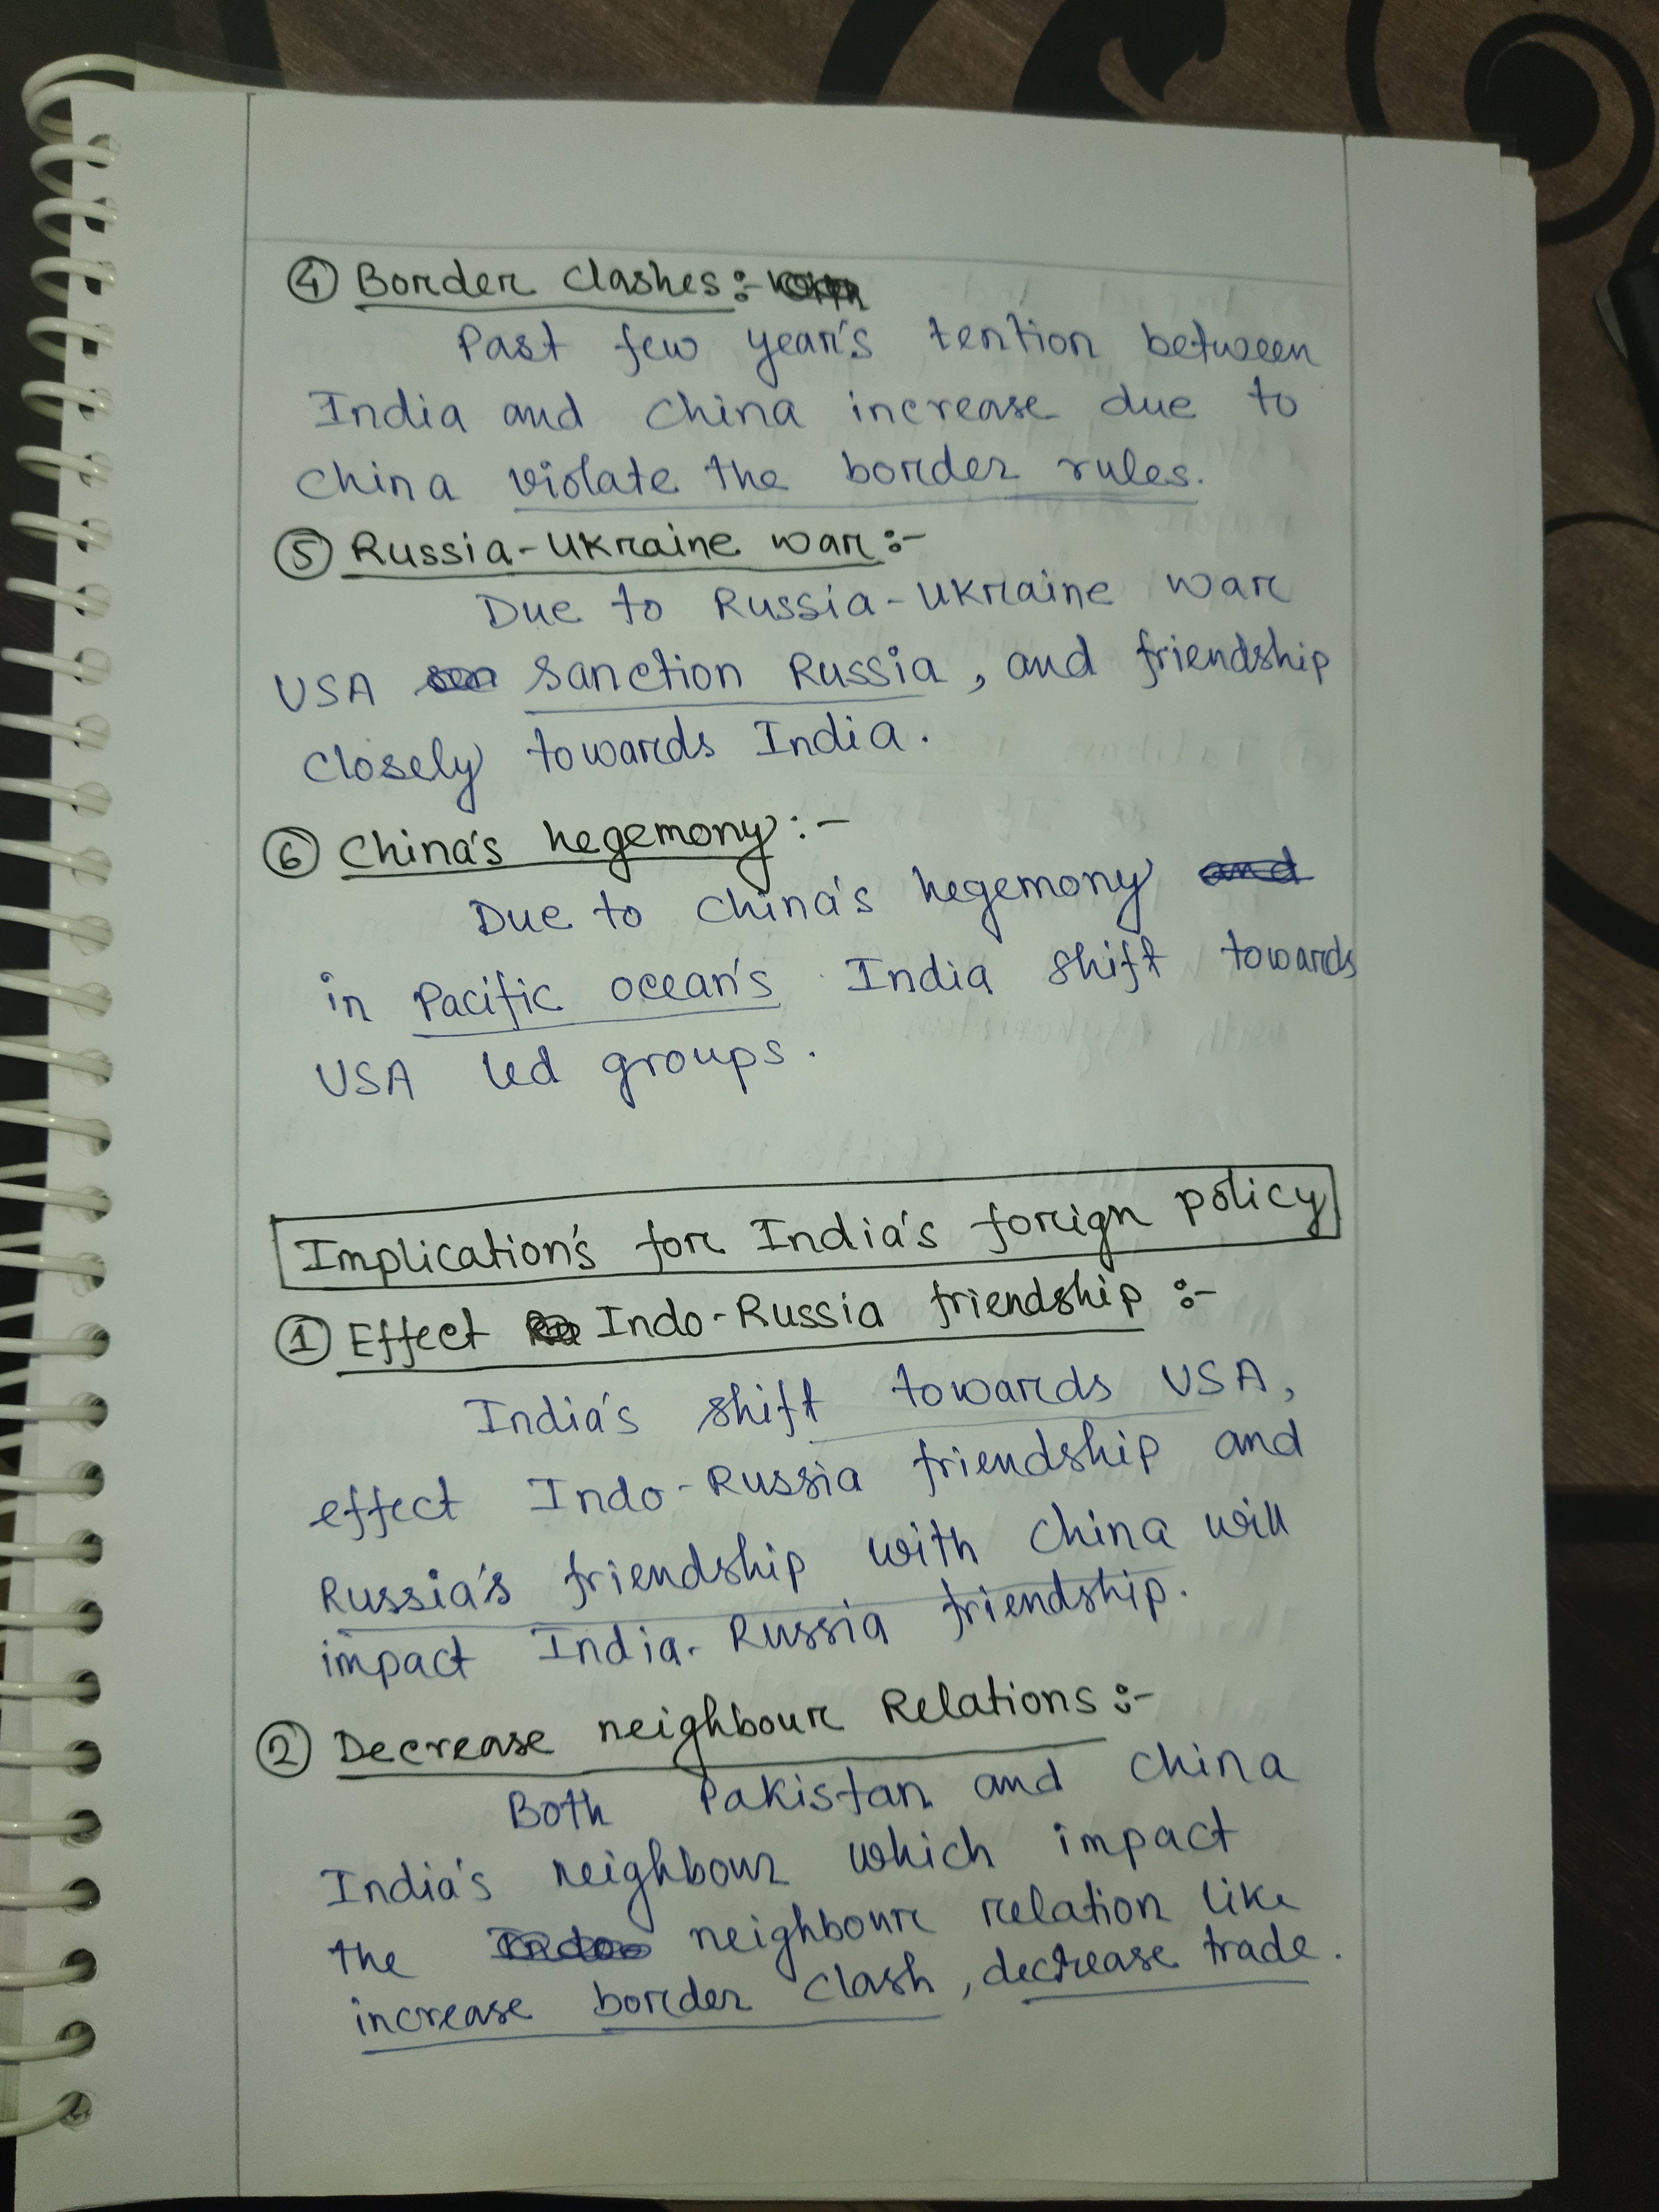 ④ Border clashes:-
Past few year's tention between
India and China increase due to
China violate the border rules.
⑤ Russia-Ukraine war:-
Due to Russia-Ukraine war
USA sanction Russia, and friendship
closely towards India.
⑥ China's hegemony:-
Due to China's hegemony and
in Pacific ocean's India shift towards
USA led groups.
Implication's for India's foriegn policy
① Effect Indo-Russia friendship:-
India's shift towards USA,
effect Indo-Russia friendship and
Russia's friendship with China will
impact India-Russia friendship.
② Decrease neighbour Relations:-
Both Pakistan and China
India's neighbour which impact
the neighbour relation like
increase border clash, decrease trade.